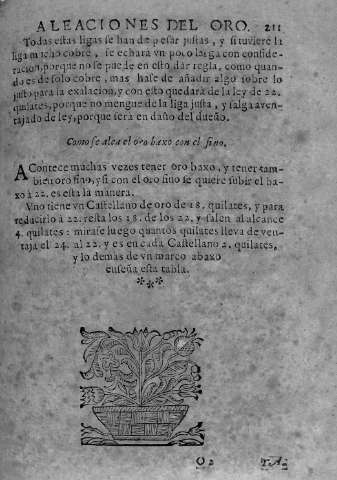 ALEACIONES DEL ORO. 211
Todas estas ligas se han de pesar justas, y si tuviere la
liga mucho cobre, se echarà vn poco larga con conside-
racion, porque no se puede en esto dar regla, como quan-
do es de solo cobre, mas hase de añadir algo sobre lo
justo para la exalacion, y con esto quedarà de la ley de 22.
quilates, porque no mengue de la liga justa, y salga aven-
tajado de ley, porque serà en daño del dueño.
Como se alea el oro baxo con el fino.
Acontece muchas vezes tener oro baxo, y tener tam-
bien oro fino, y si con el oro fino se quiere subir el ba-
xo à 22. es esta la manera.
Vno tiene vn Castellano de oro de 18. quilates, y para
reducirlo à 22. resta los 18. de los 22. y salen al alcance
4. quilates: mirase luego quantos quilates lleva de ven-
taja el 24. al 22. y es en cada Castellano 2. quilates,
y lo demàs de vn marco abaxo
enseña esta tabla.
O 2 TA-